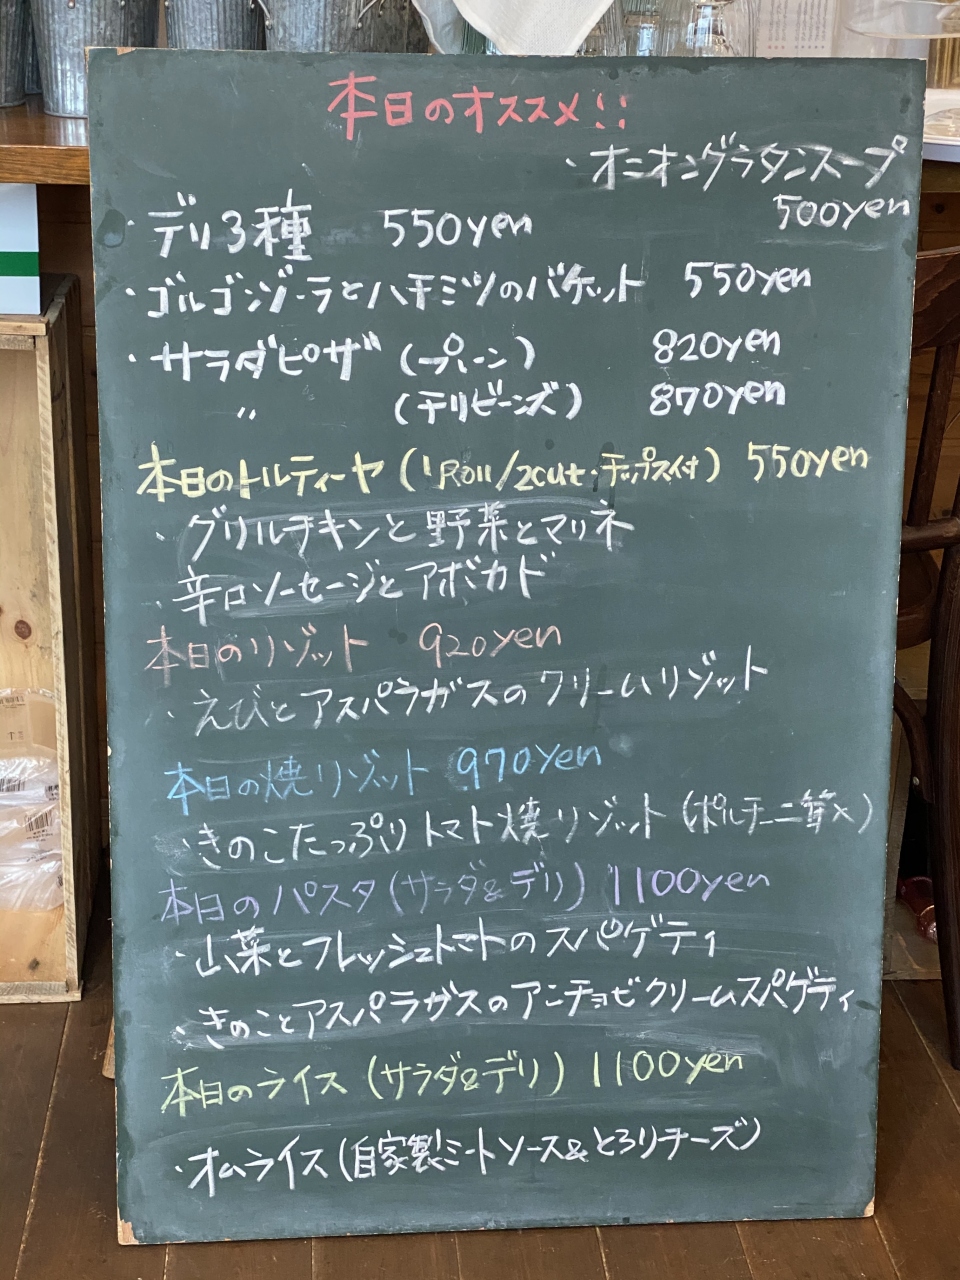 本日のオススメ!!
・オニオングラタンスープ
500yen
・デリ3種 550yen
・ゴルゴンゾーラとハチミツのバケット 550yen
・サラダピザ (プレーン) 820yen
〃 (チリビーンズ) 870yen
本日のトルティーヤ (1Roll/2cut・チップス付) 550yen
・グリルチキンと野菜とマリネ
・辛口ソーセージとアボカド
本日のリゾット 920yen
・えびとアスパラガスのクリームリゾット
本日の焼リゾット 970yen
・きのこたっぷりトマト焼リゾット (ポルチーニ茸×)
本日のパスタ (サラダ&デリ) 1100yen
・山菜とフレッシュトマトのスパゲティ
・きのことアスパラガスのアンチョビクリームスパゲティ
本日のライス (サラダ&デリ) 1100yen
・オムライス (自家製ミートソース&とろりチーズ)